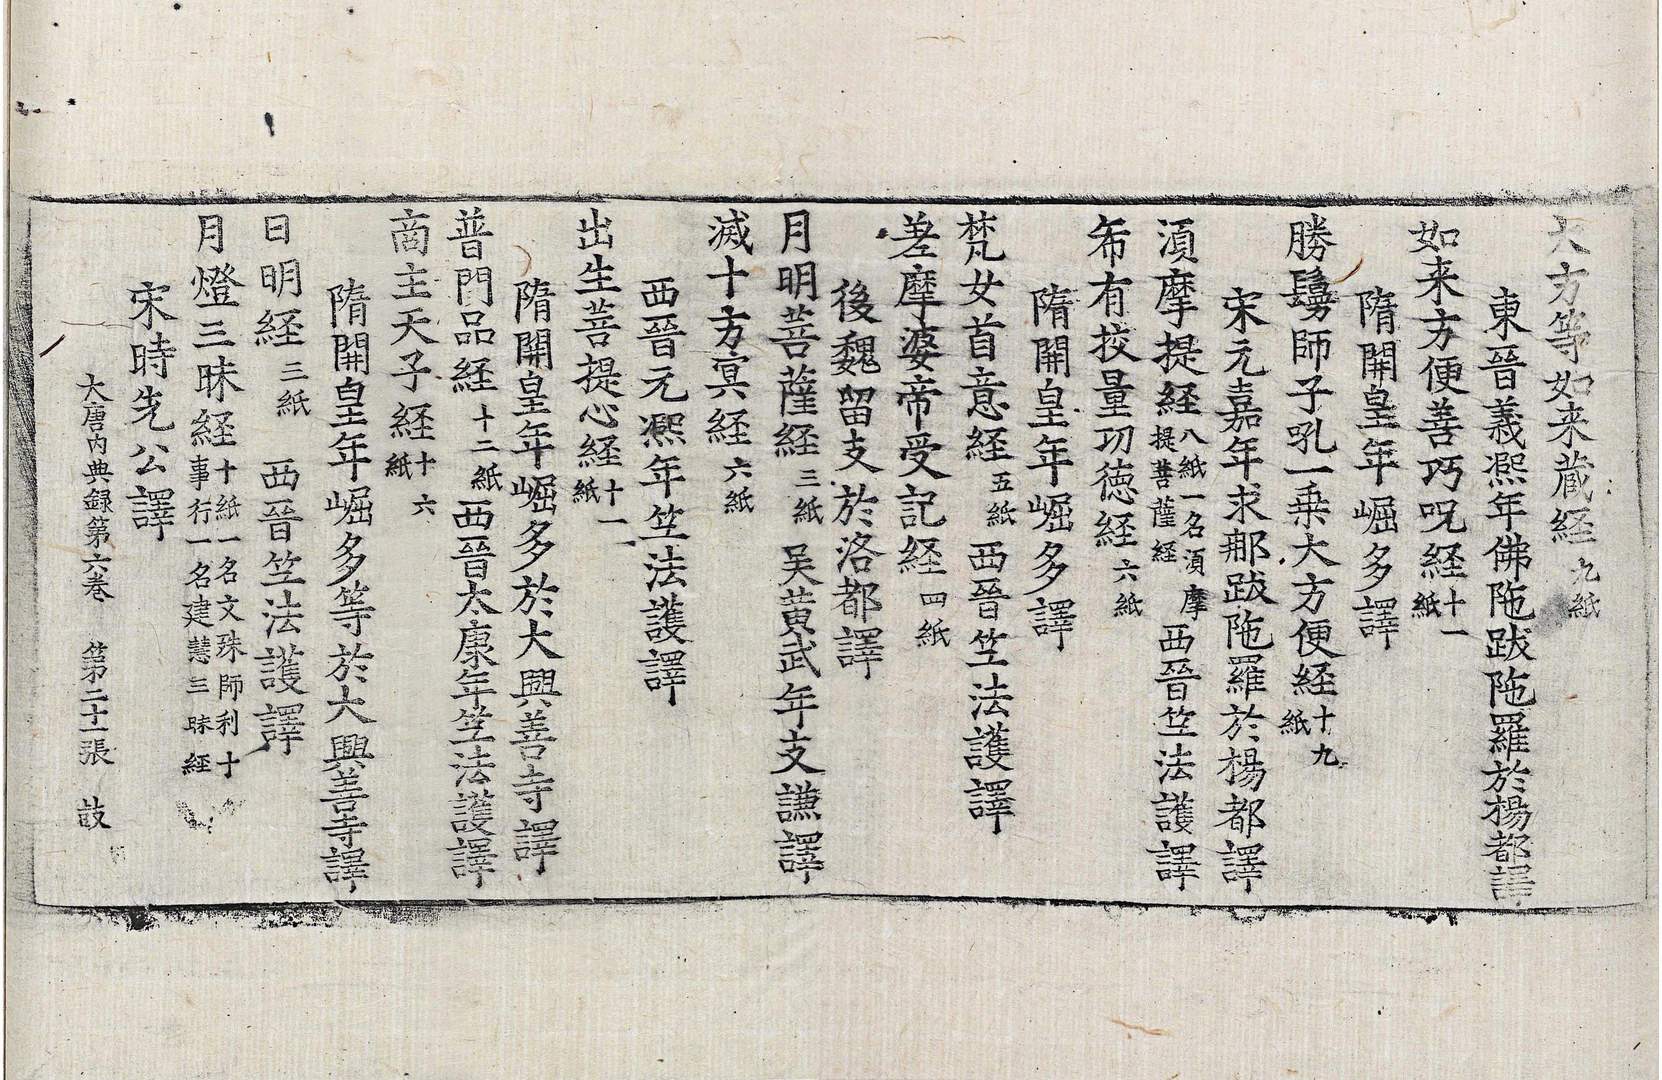 大方等如来蔵経 九紙
東晉義熈年佛陁跋陁羅於楊都譯
如来方便善巧呪経 十一紙
隋開皇年崛多譯
勝鬘師子吼一乗大方便経 十九紙
宋元嘉年求那跋陁羅於楊都譯
湏摩提経 八紙一名湏摩提菩薩経 西晉竺法護譯
希有挍量功徳経 六紙
隋開皇年崛多譯
梵女首意経 五紙 西晉竺法護譯
差摩婆帝受記経 四紙
後魏留支於洛都譯
月明菩薩経 三紙 吴黄武年支謙譯
滅十方冥経 六紙
西晉元熈年竺法護譯
出生菩提心経 十一紙
隋開皇年崛多於大興善寺譯
普門品経 十二紙 西晉太康年竺法護譯
商主天子経 十六紙
隋開皇年崛多等於大興善寺譯
日明経 三紙 西晉竺法護譯
月燈三昧経 十紙一名文殊師利十事行一名建慧三昧経
宋時先公譯
大唐内典録第六巻 第二十一張 𢻃